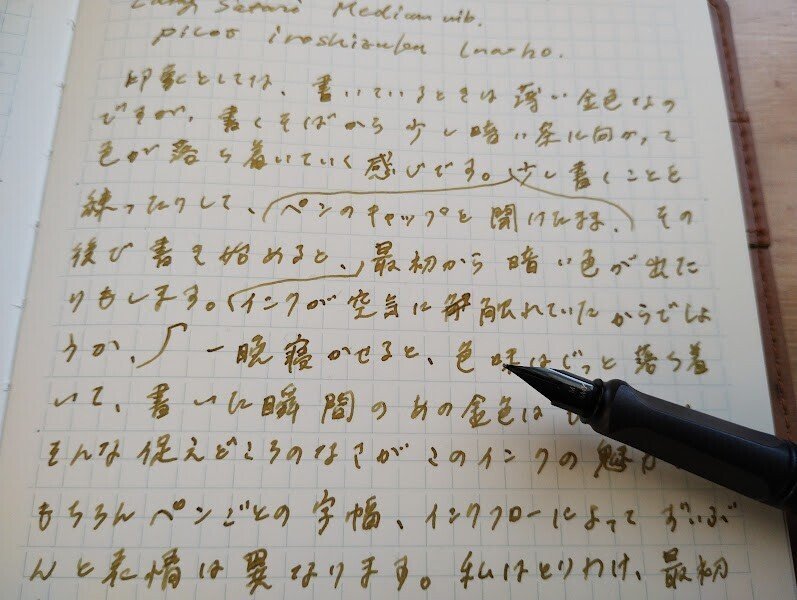 Lamy Safari Medium nib.
Pilot iroshizuku ina-ho.
印象としては、書いているときは薄い金色なの
ですが、書くそばから少し暗い茶に向かって
色が落ち着いていく感じです。少し書くことを
練ったりして、ペンのキャップを開けたまま、その
後び書き始めると、最初から暗い色が出た
りもします。インクが空気に触れていたからでしょ
うか、一晩寝かせると、色味はぐっと落ち着
いて、書いた瞬間のあの金色は
そんな捉えどころのなさがこのインクの魅
もちろんペンごとの字幅、インクフローによってずいぶ
んと表情は異なります。私はとりわけ、最初